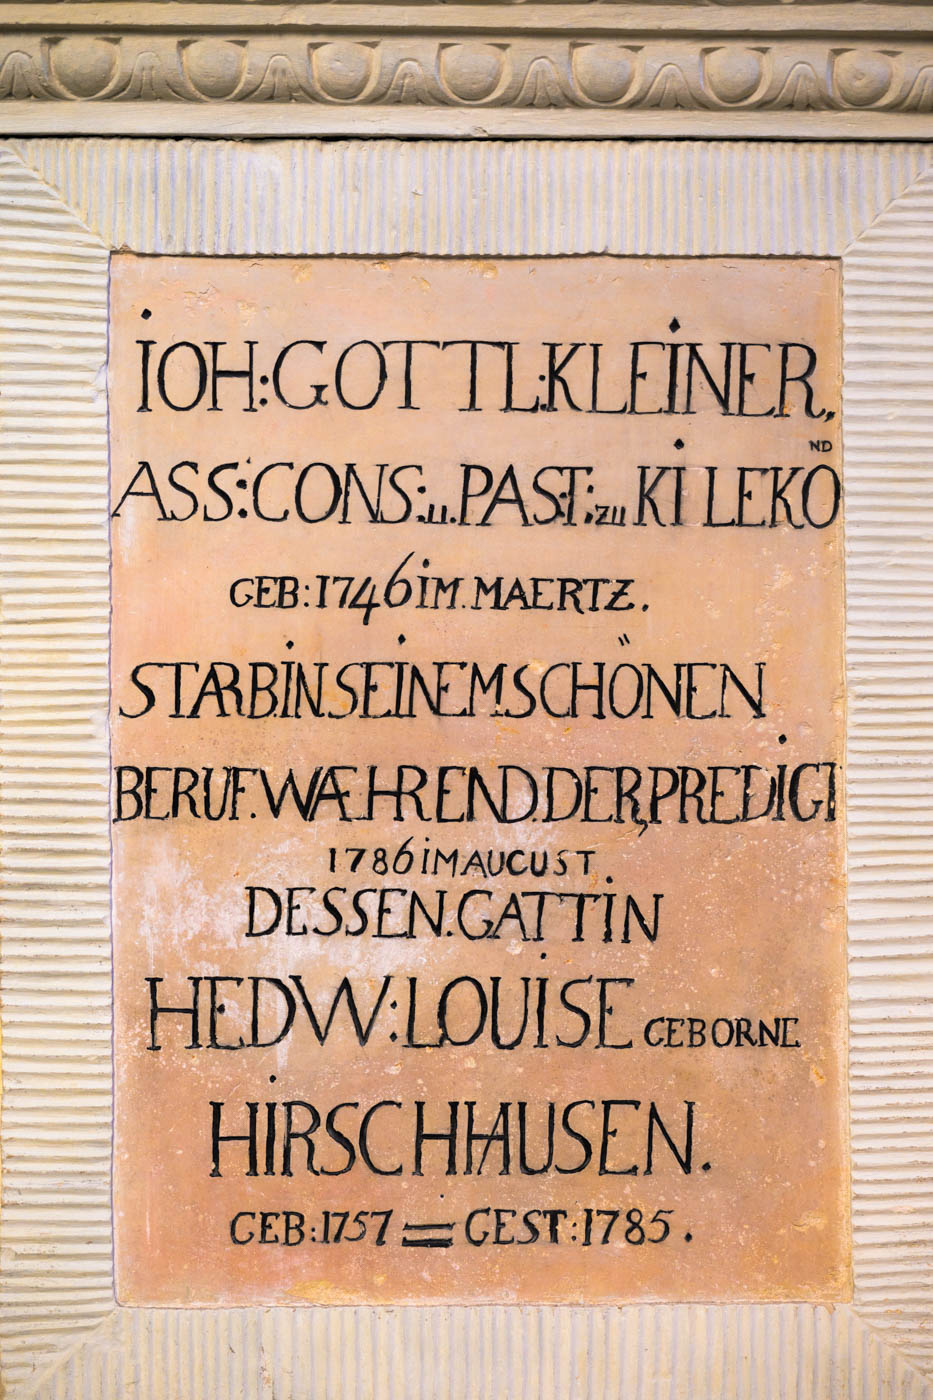 IOH: GOTTL: KLEINER,
ASS: CONS: u. PAST: zu KILEKO ND
GEB: 1746 IM. MAERTZ.
STARB. IN SEINEM SCHÖNEN
BERUF. WÆHREND. DER, PREDIGT
1786 IM AUGUST.
DESSEN. GATTIN
HEDW: LOUISE GEBORNE
HIRSCHHAUSEN.
GEB: 1757 = GEST: 1785.